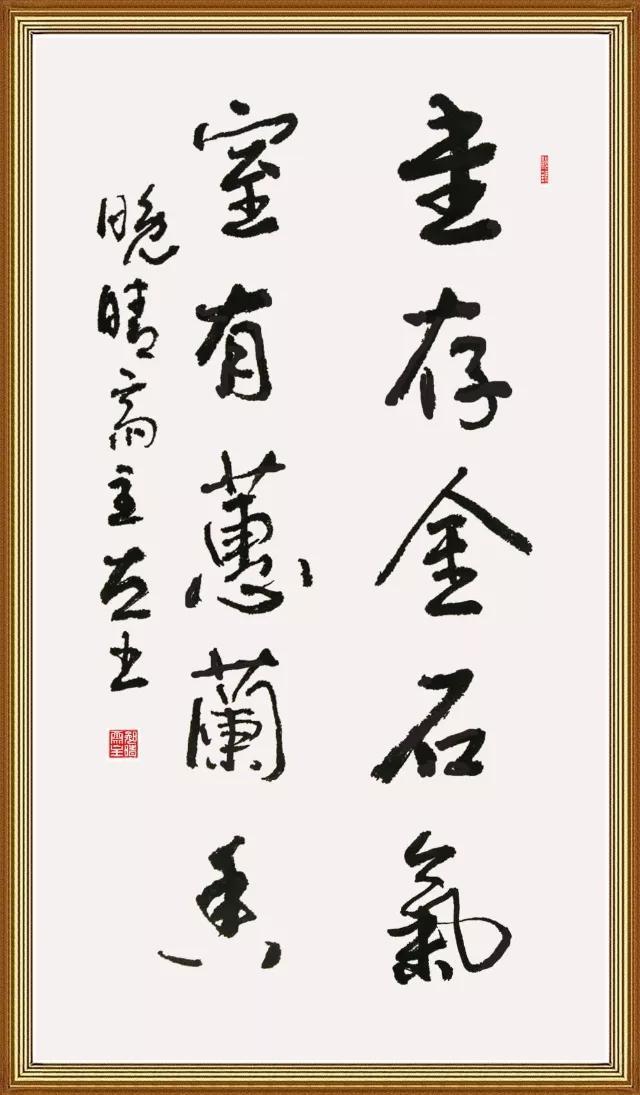 書存金石氣
室有蕙蘭香
晚晴齋主